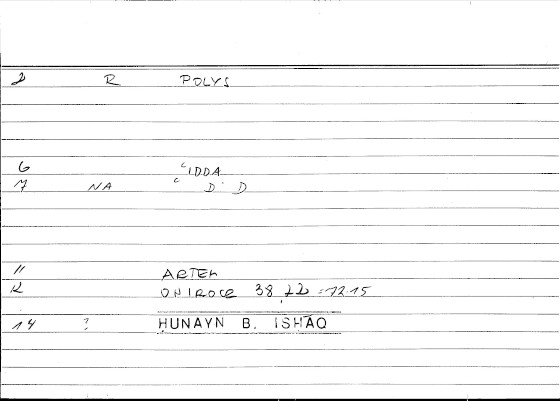 2 R POLYS
6 ʿIDDA
7 NA ʿ D D
11 ARTEM
12 ONIROCR 38,22 = 72.15
14 ? HUNAYN B. ISHĀQ